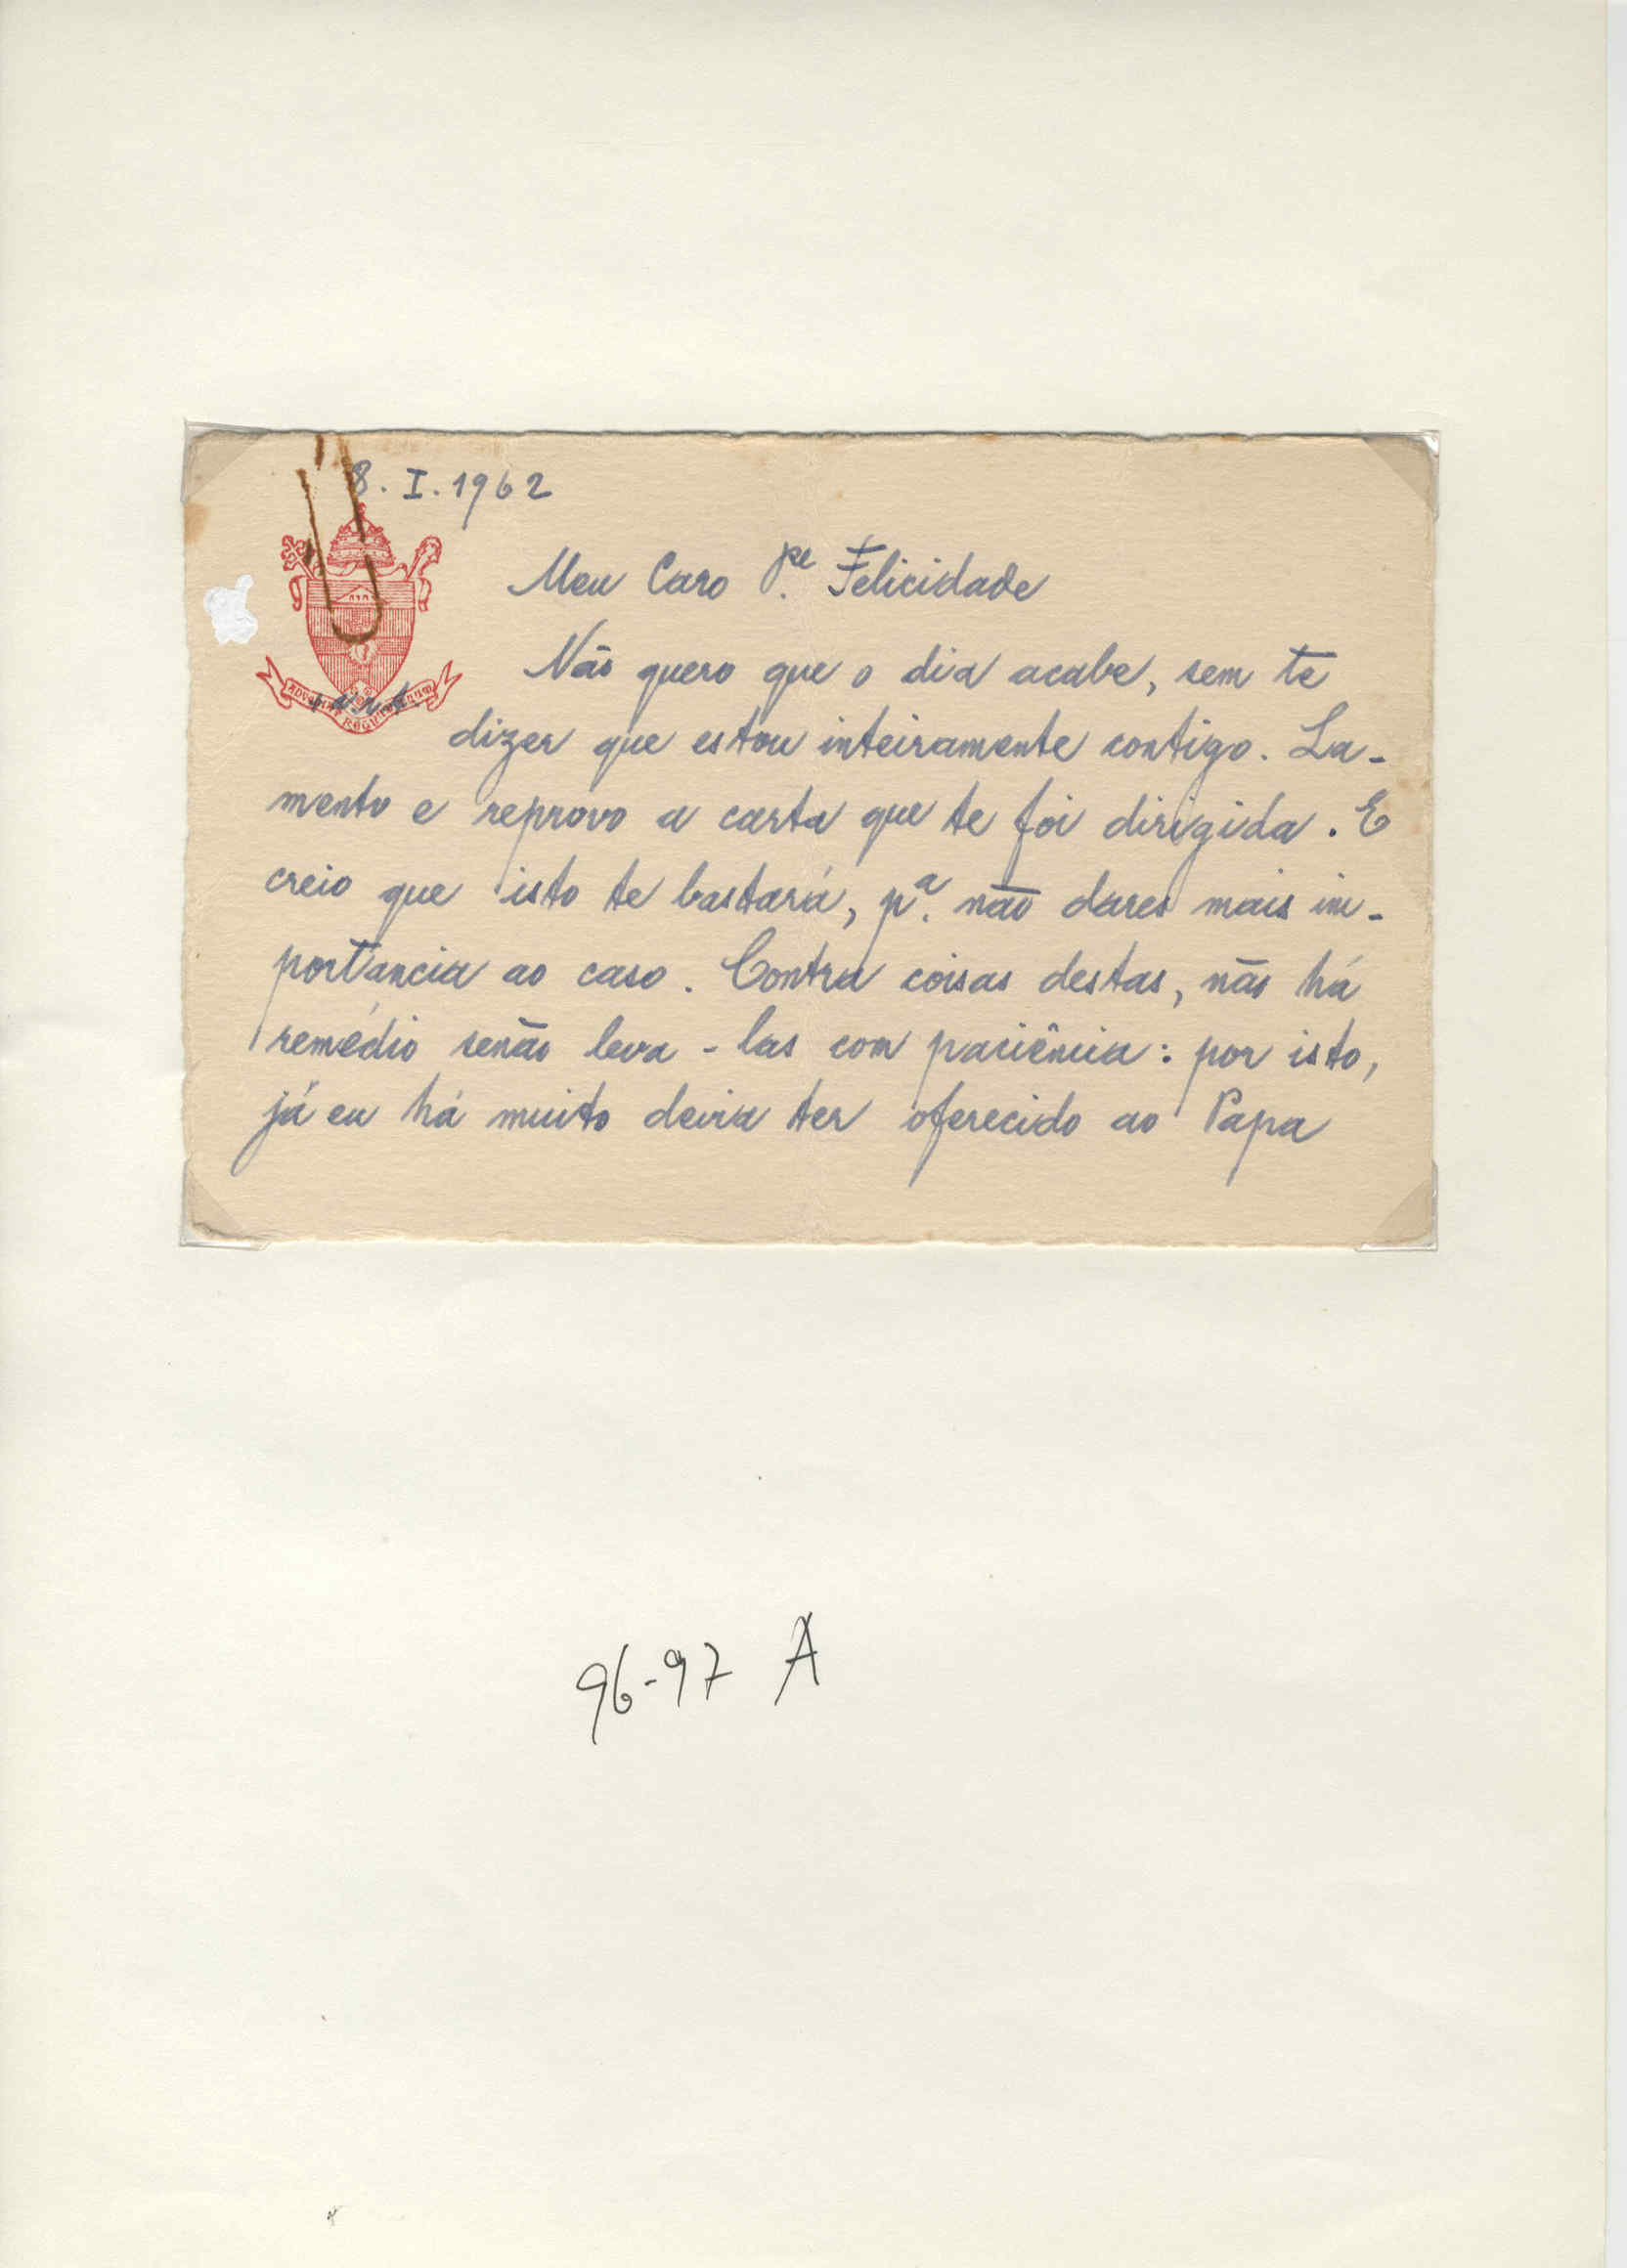 8. I. 1962
Meu Caro P.e Felicidade
Não quero que o dia acabe, sem te
dizer que estou inteiramente contigo. La-
mento e reprovo a carta que te foi dirigida. E
creio que isto te bastará, p.a não dares mais im-
portancia ao caso. Contra coisas destas, não há
remédio senão leva-las com paciência: por isto,
já eu há muito devia ter oferecido ao Papa
96-97 A